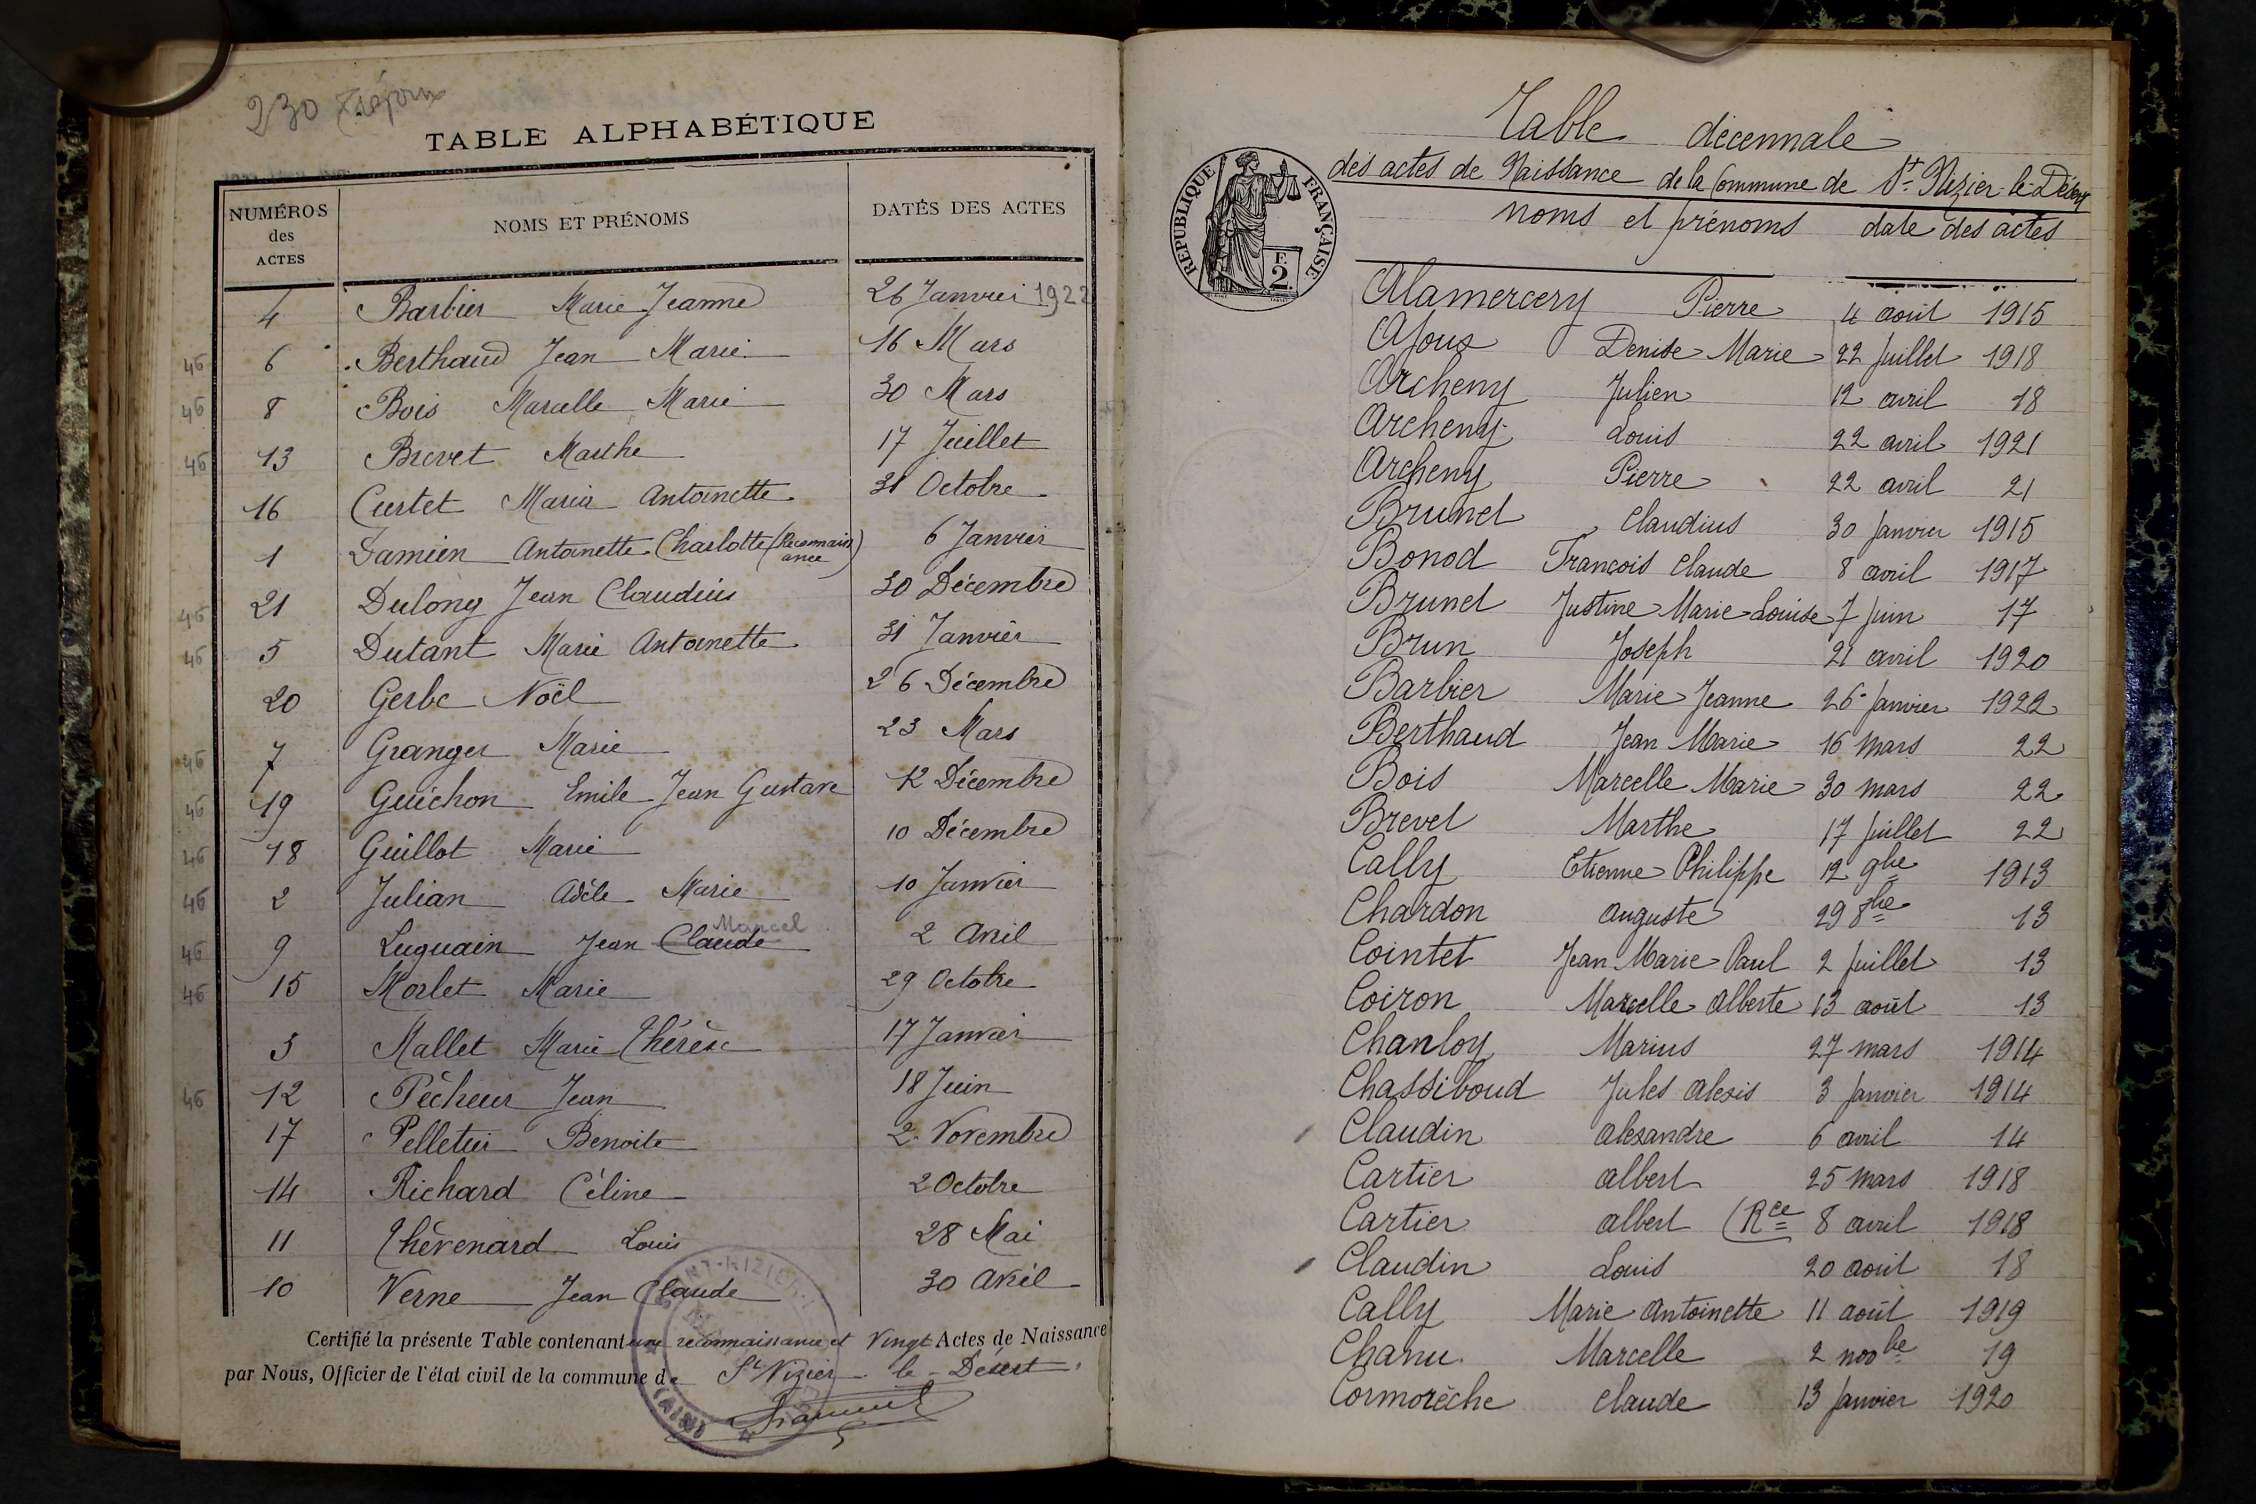 230
TABLE ALPHABÉTIQUE
NUMÉROS des ACTES NOMS ET PRÉNOMS DATES DES ACTES
4 Barbier Marie Jeanne 26 Janvier 1922
46 6 Berthaud Jean Marie 16 Mars
46 8 Bois Marcelle Marie 30 Mars
46 13 Brevet Marthe 17 Juillet
16 Curtet Maria Antoinette 31 Octobre
1 Damien Antoinette Charlotte (Reconnaissance) 6 Janvier
46 21 Dulong Jean Claudius 30 Décembre
46 5 Dutant Marie Antoinette 31 Janvier
20 Gerbe Noël 26 Décembre
46 7 Granger Marie 23 Mars
46 19 Guichon Emile Jean Gustave 12 Décembre
46 18 Guillot Marie 10 Décembre
46 2 Julian Adèle Marie 10 Janvier
46 9 Luquain Jean Claude Marcel 2 Avril
46 15 Morlet Marie 29 Octobre
3 Mallet Marie Thérèse 17 Janvier
46 12 Pécheur Jean 18 Juin
17 Pelletier Benoite 2 Novembre
14 Richard Céline 2 Octobre
11 Thévenard Louis 28 Mai
10 Verne Jean Claude 30 Avril
Certifié la présente Table contenant une reconnaissance et Vingt Actes de Naissance
par Nous, Officier de l'état civil de la commune de St Nizier-le-Désert
Table décennale
RÉPUBLIQUE FRANÇAISE
F. 2.
des actes de Naissance de la Commune de St Nizier-le-Désert
noms et prénoms date des actes
Alamercery Pierre 4 août 1915
Ajoux Denise Marie 22 Juillet 1918
Archeny Julien 12 avril 18
Archeny Louis 22 avril 1921
Archeny Pierre 22 avril 21
Brunet Claudius 30 Janvier 1915
Bonod François Claude 8 avril 1917
Brunet Justine Marie Louise 7 Juin 17
Brun Joseph 21 avril 1920
Barbier Marie Jeanne 26 Janvier 1922
Berthaud Jean Marie 16 mars 22
Bois Marcelle Marie 30 mars 22
Brevet Marthe 17 Juillet 22
Cally Etienne Philippe 12 9bre 1913
Chardon Auguste 29 8bre 13
Cointet Jean Marie Paul 2 Juillet 13
Coiron Marcelle Alberte 13 août 13
Chanloy Marius 27 mars 1914
Chassiboud Jules Alexis 3 Janvier 1914
Claudin Alexandre 6 avril 14
Cartier Albert 25 mars 1918
Cartier Albert (Rce 8 avril 1918
Claudin Louis 20 août 18
Cally Marie Antoinette 11 août 1919
Chanu Marcelle 2 novbre 19
Cormorèche Claude 13 Janvier 1920